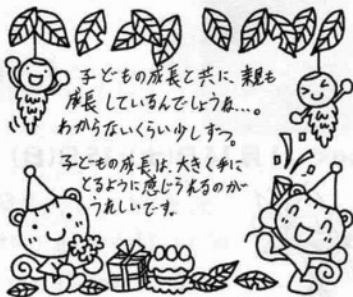 子どもの成長と共に、親も
成長しているんでしょうね…。
わからないくらい少しずつ。
子どもの成長は、大きく手に
とるように感じられるのが
うれしいです。